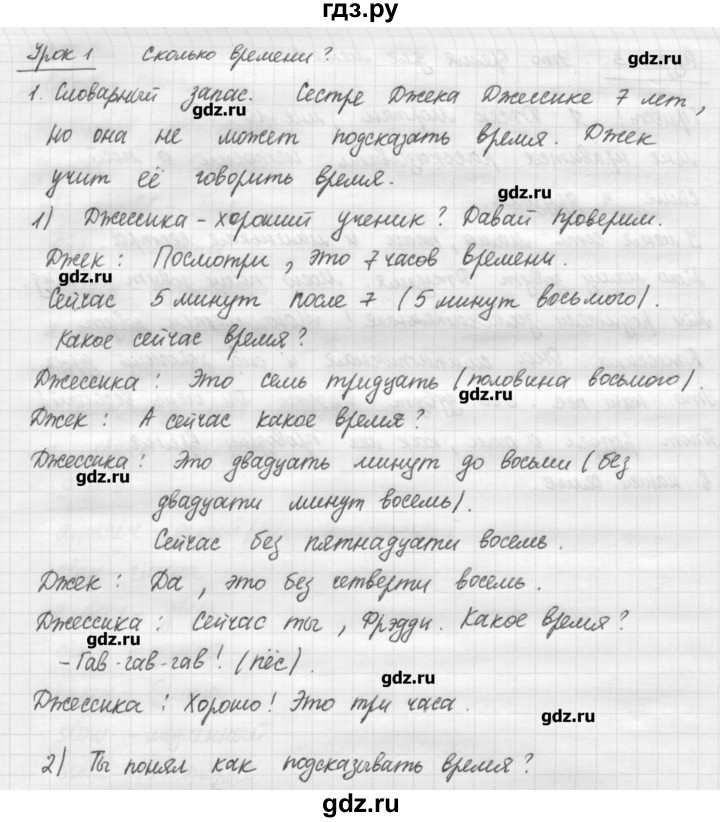 гдз.ру
Урок 1 Сколько времени?
gdz.ru
1. Словарный запас. Сестре Джека Джессике 7 лет,
gdz.ru
но она не может подсказать время. Джек
учит её говорить время.
gdz.ru
1) Джессика - хороший ученик? Давай проверим.
Джек: Посмотри, это 7 часов времени.
gdz.ru
Сейчас 5 минут после 7 (5 минут восьмого).
Какое сейчас время?
Джессика: Это семь тридцать (половина восьмого).
gdz.ru
Джек: А сейчас какое время?
Джессика: Это двадцать минут до восьми (без
gdz.ru
двадцати минут восемь).
Сейчас без пятнадцати восемь.
Джек: Да, это без четверти восемь.
Джессика: Сейчас ты, Фрэдди. Какое время?
gdz.ru
- Гав-гав-гав! (пёс).
gdz.ru
Джессика: Хорошо! Это три часа.
gdz.ru
2) Ты понял как подсказывать время?
gdz.ru